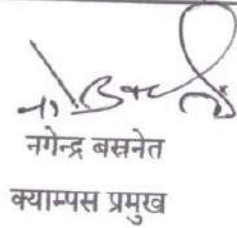 नगेन्द्र बस्नेत
क्याम्पस प्रमुख